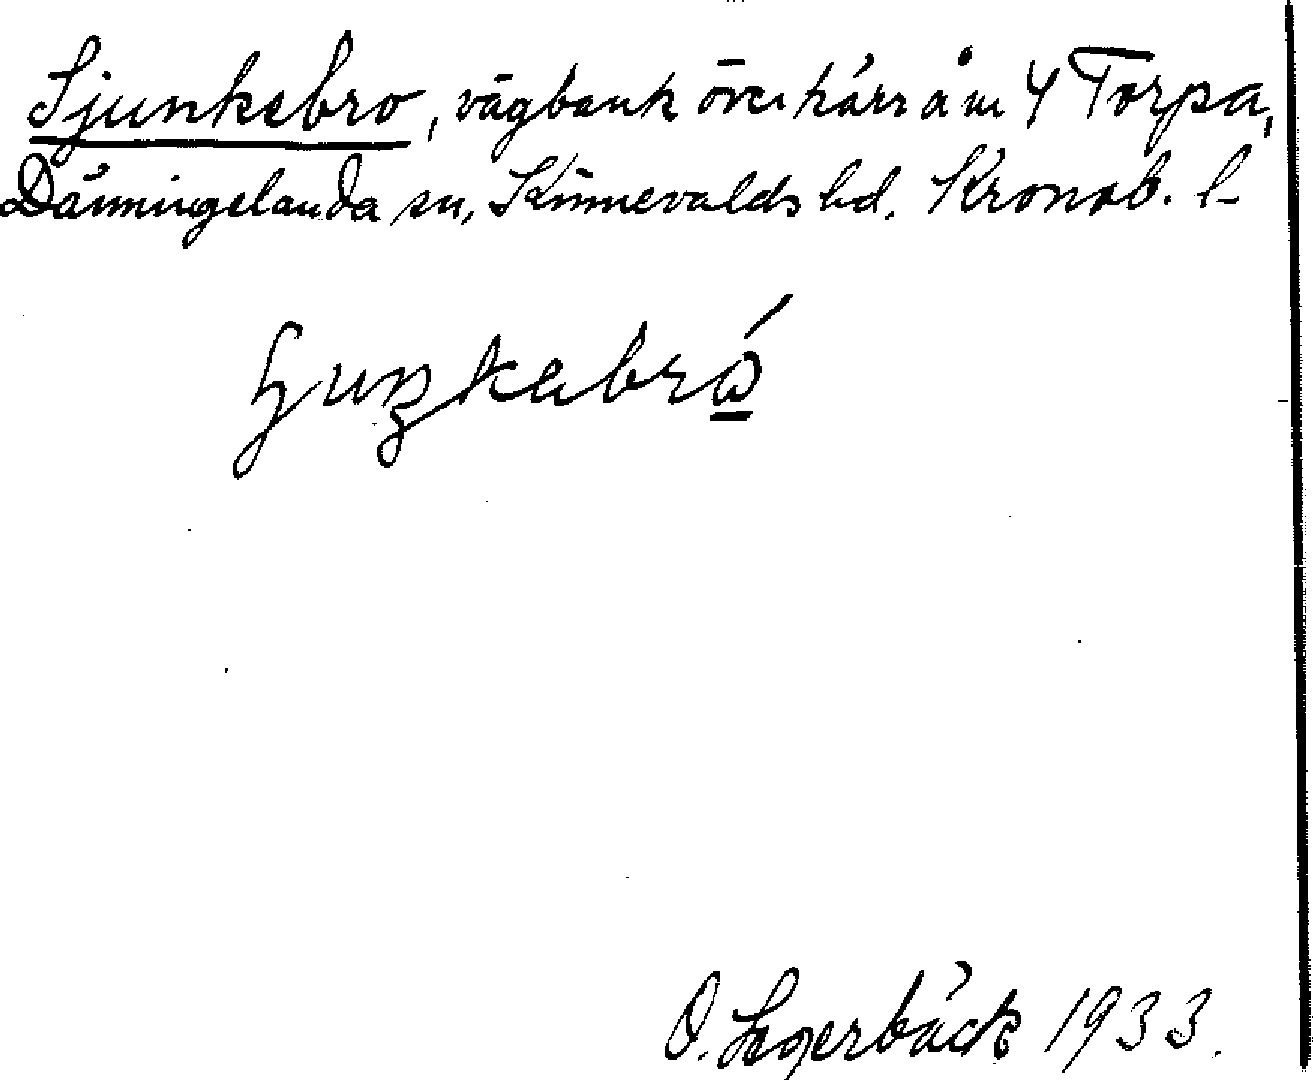 Sjunkebro, vägbank över kärr å m 4 Torpa,
Dänningelanda sn, Kinnevalds hd. Kronob. l
O. Segerbäck 1933.